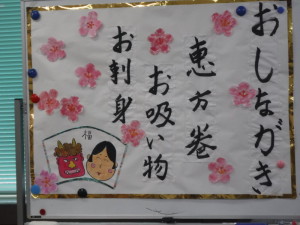 おしながき
恵方巻
お吸い物
お刺身
福